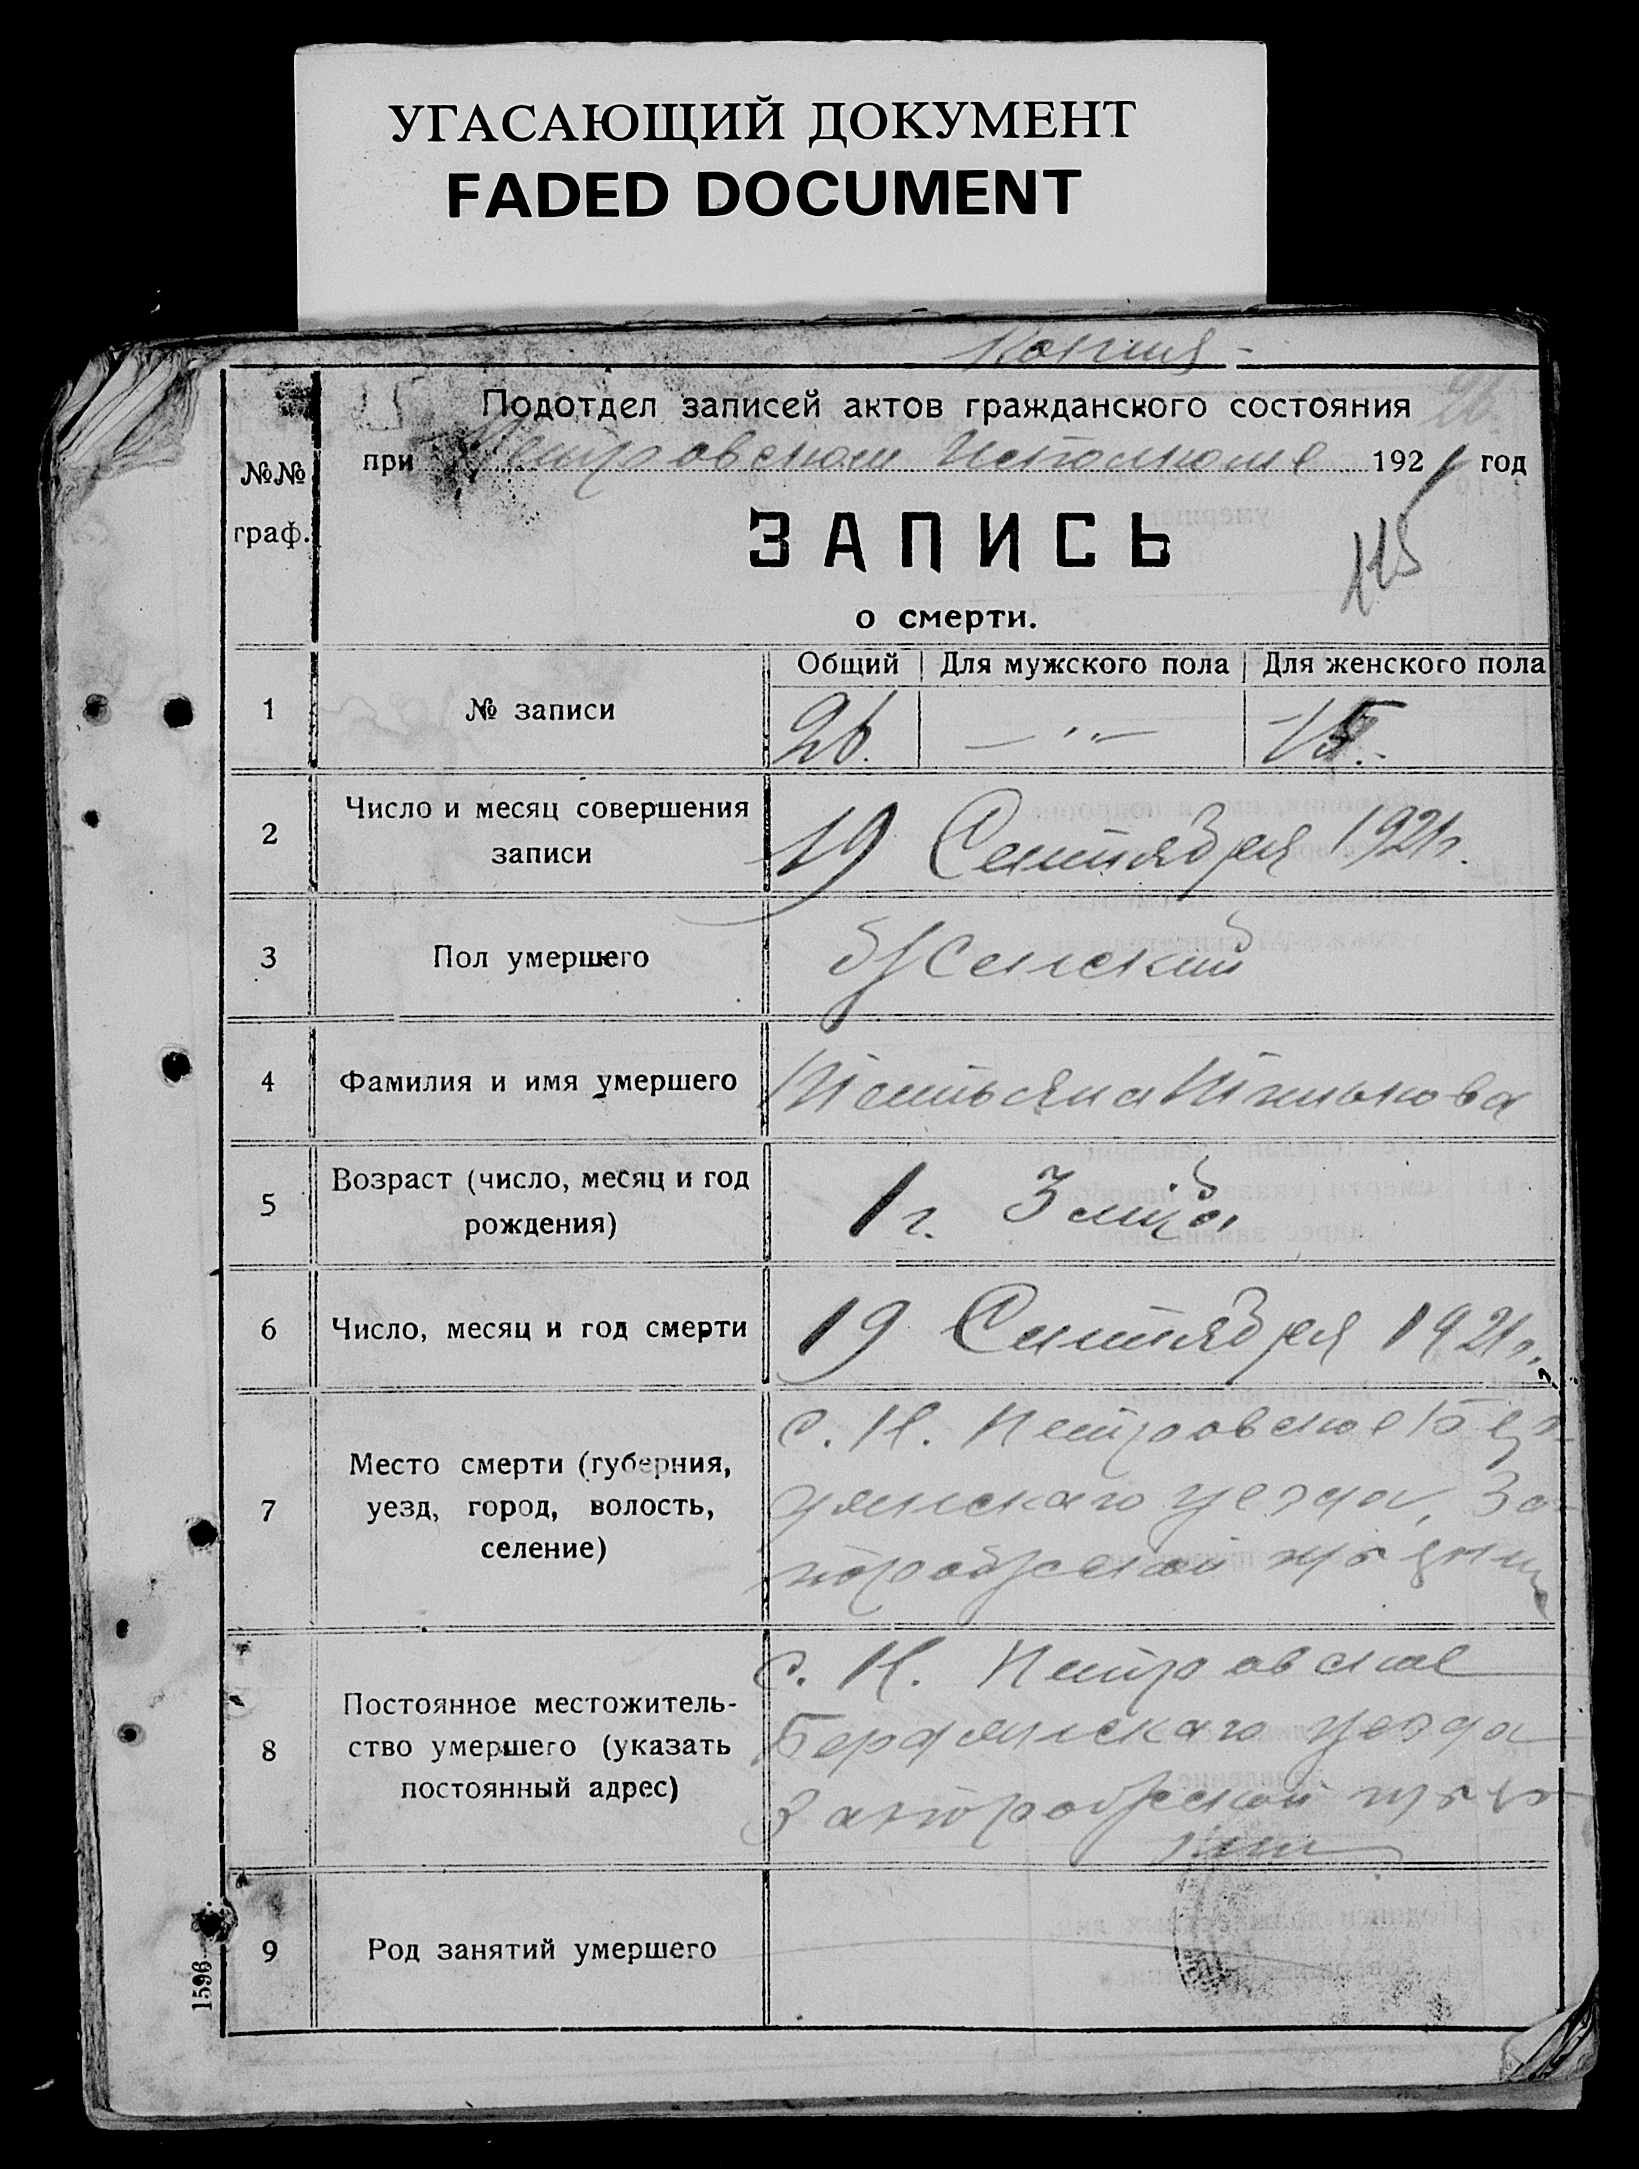 УГАСАЮЩИЙ ДОКУМЕНТ
FADED DOCUMENT
Копия
Подотдел записей актов гражданского состояния
26
№№ граф.
при Петровском Исполкоме 1921 год
ЗАПИСЬ
115
о смерти.
Общий Для мужского пола Для женского пола
1 № записи 26. — " — 15.
2 Число и месяц совершения
записи 19 Сентября 1921 г.
3 Пол умершего Женский
4 Фамилия и имя умершего Татьяна
5 Возраст (число, месяц и год
рождения) 1 г. 3 мца
6 Число, месяц и год смерти 19 Сентября 1921 г.
7 Место смерти (губерния,
уезд, город, волость,
селение)
с. Н. Петровское Бер-
дянскаго уезда, За-
порожской губернии
8 Постоянное местожитель-
ство умершего (указать
постоянный адрес)
с. Н. Петровское
Бердянскаго уезда
Запорожской губер
нии
9 Род занятий умершего
1596